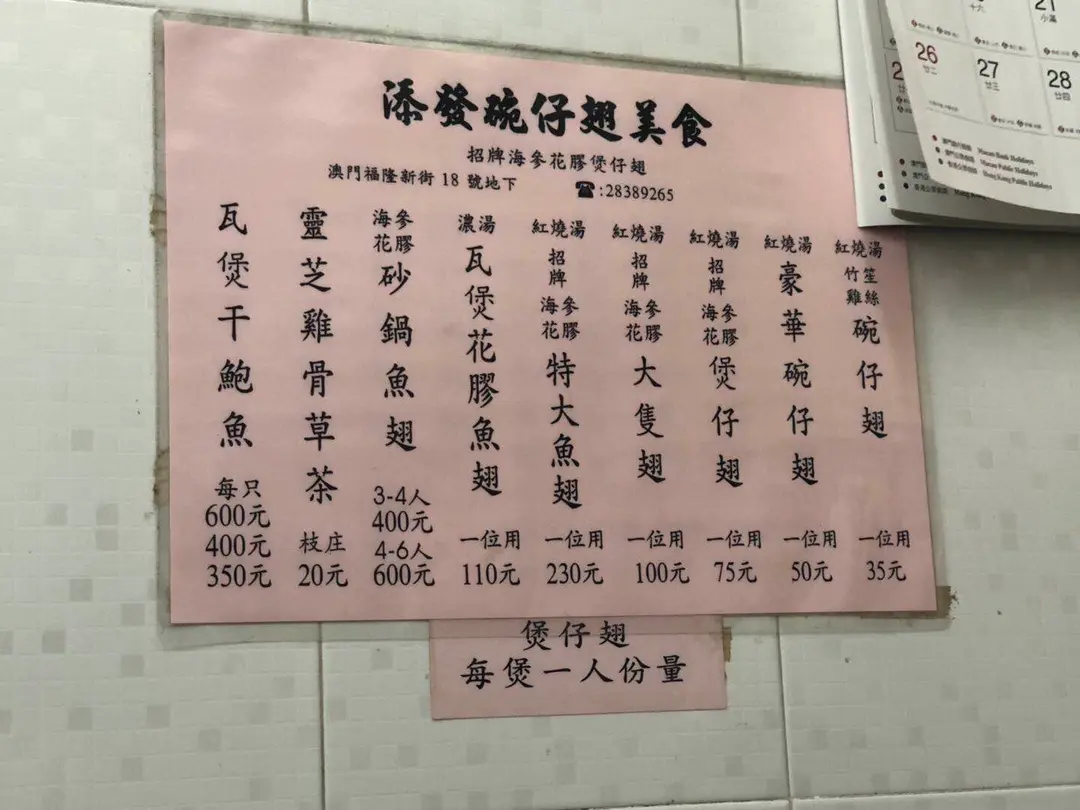 添發碗仔翅美食
招牌海參花膠煲仔翅
澳門福隆新街 18 號地下 ☎:28389265
紅燒湯 竹笙雞絲 碗仔翅 一位用 35元
紅燒湯 豪華碗仔翅 一位用 50元
紅燒湯 招牌 海參花膠 煲仔翅 一位用 75元
紅燒湯 招牌 海參花膠 大隻翅 一位用 100元
紅燒湯 招牌 海參花膠 特大魚翅 一位用 230元
濃湯 瓦煲花膠魚翅 一位用 110元
海參花膠 砂鍋魚翅 3-4人 400元 4-6人 600元
靈芝雞骨草茶 枝庄 20元
瓦煲干鮑魚 每只 600元 400元 350元
煲仔翅
每煲一人份量
十六
21
小滿
26
廿二
27
廿三
28
廿四
Macau Bank Holidays
Macau Public Holidays
Hong Kong Public Holidays